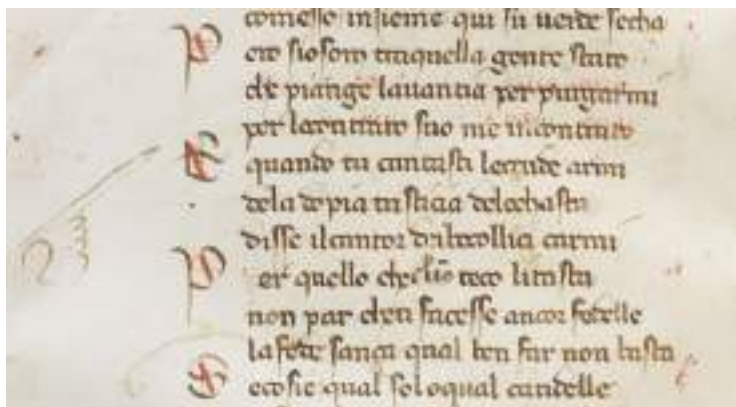 comesso insieme qui su uerde secha
P ero siosom traquella gente stato
che piange lauaritia per purgarmi
per lo contrario suo me incontrato
E quando tu cantasti lecrude armi
dela dopia tristicia delochasta
disse ilcantor dibucollici carmi
P er quello che clio teco litasta
non par cheti facesse ancor fedelle
la fede sança qual ben far non basta
S ecosie qual soloqual candelle